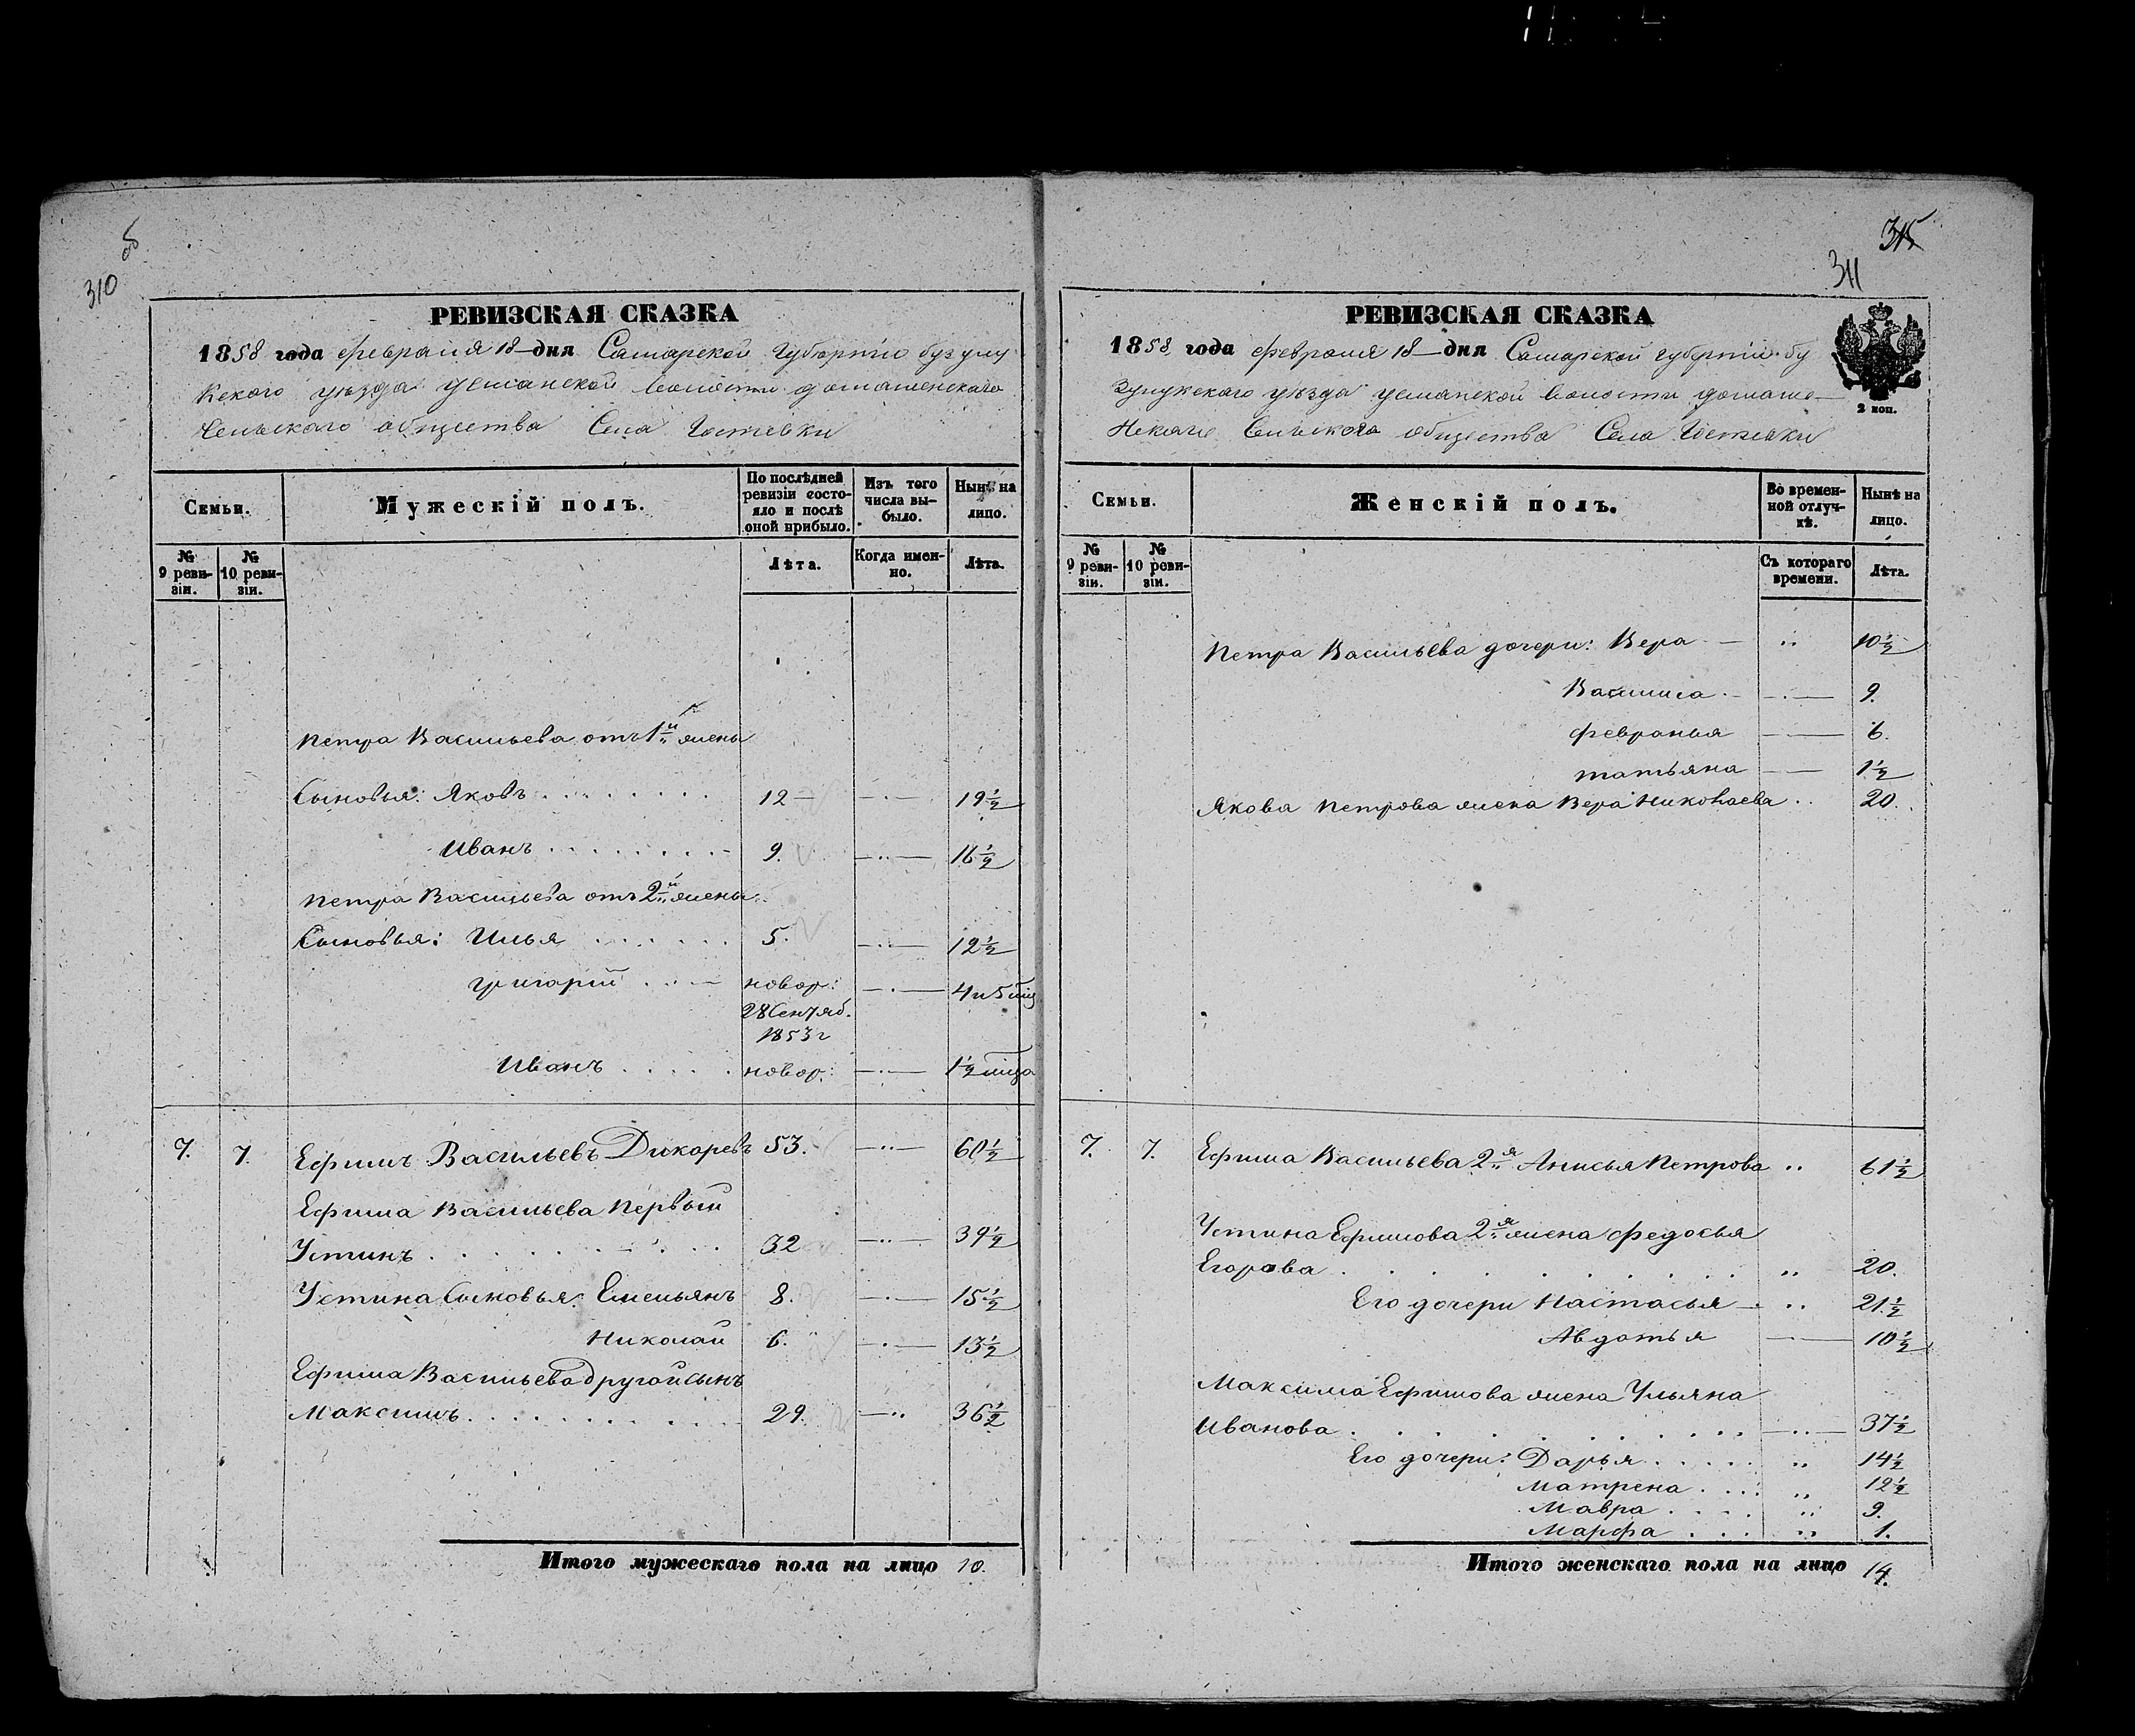 310
об
РЕВИЗСКАЯ СКАЗКА
1858 года февраля 18 — дня Самарской Губернiи бузулу
кского уѣзда усманской волости домашенского
Сельского общества Села Гостевки
Семьи.
Мужескій полъ.
По послѣдней ревизіи состо-
яло и послѣ оной прибыло.
Изъ того числа вы-
было.
Нынѣ на лицо.
№ 9 реви-
зіи.
№ 10 реви-
зіи.
Лѣта.
Когда имен-
но.
Лѣта.
Петра Васильева отъ 1й жены
Сыновья: Яковъ 12 — 19½
Иванъ 9. 16½
Петра Васильева отъ 2й жены
Сыновья: Илья 5. 12½
Григорий новор: 4 и 5 мц
28 Сентяб.
1853 г
Иванъ новор: 1½ мца
7. 7. Ефимъ Васильевъ Дикаревъ 53. 60½
Ефима Васильева Первый
Устинъ 32 39½
Устина Сыновья: Емельянъ 8. 15½
Николай 6. 13½
Ефима Васильева другой сынъ
Максимъ 29. 36½
Итого мужескаго пола на лицо 10.
315
311
РЕВИЗСКАЯ СКАЗКА
1858 года февраля 18 — дня Самарской губернiи бу
зулужского уѣзда усманской волости домаше—
нского Сельского общества Села Гостевки
2 коп.
Семьи.
Женскій полъ.
Во времен-
ной отлуч-
кѣ.
Нынѣ на лицо.
№ 9 реви-
зіи.
№ 10 реви-
зіи.
Съ котораго времени.
Лѣта.
Петра Васильева дочери: Вера — „ 10½
Василиса 9.
Февронья 6.
татьяна 1½
Якова Петрова жена Вера Николаева 20.
7. 7. Ефима Васильева 2я Анисья Петрова „ 61½
Устина Ефимова 2я жена Федосья
Егорова „ 20.
Его дочери Настасья „ 21½
Авдотья 10½
Максима Ефимова жена Ульяна
Иванова 37½
Его дочери: Дарья „ 14½
Матрена „ 12½
Мавра „ 9.
Марфа „ 1.
Итого женскаго пола на лицо 14.